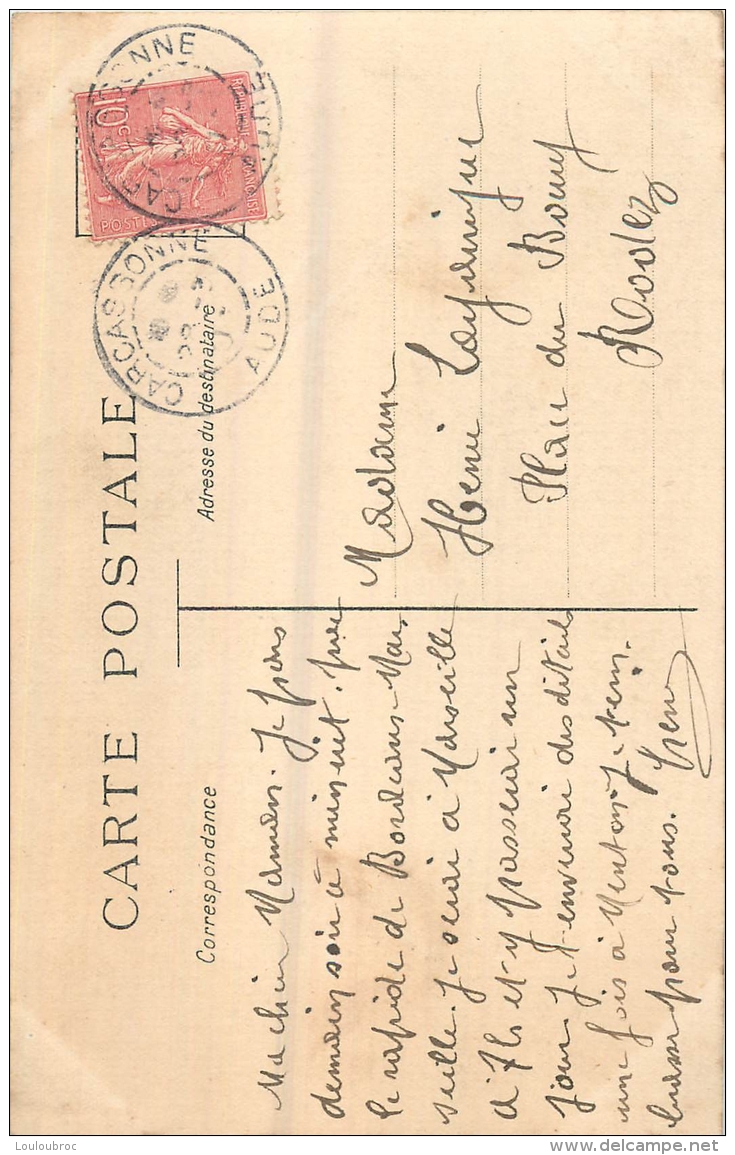 CARTE POSTALE
Correspondance
Adresse du destinataire
RÉPUBLIQUE FRANÇAISE
10c
POSTES
CARCASSONNE
AUDE
CARCASSONNE
AUDE
Ma chère Maman. Je pars
demain soir à minuit. par
le rapide de Bordeaux-Mar
seille. Je serai à Marseille
à 7h et y passerai un
jour. Je t'enverrai des détails
une fois à Menton. Je t'em-
brasse pour tous. Henry
Madame
Henri
Place du Bourg
Rodez
Louloubroc
www.delcampe.net